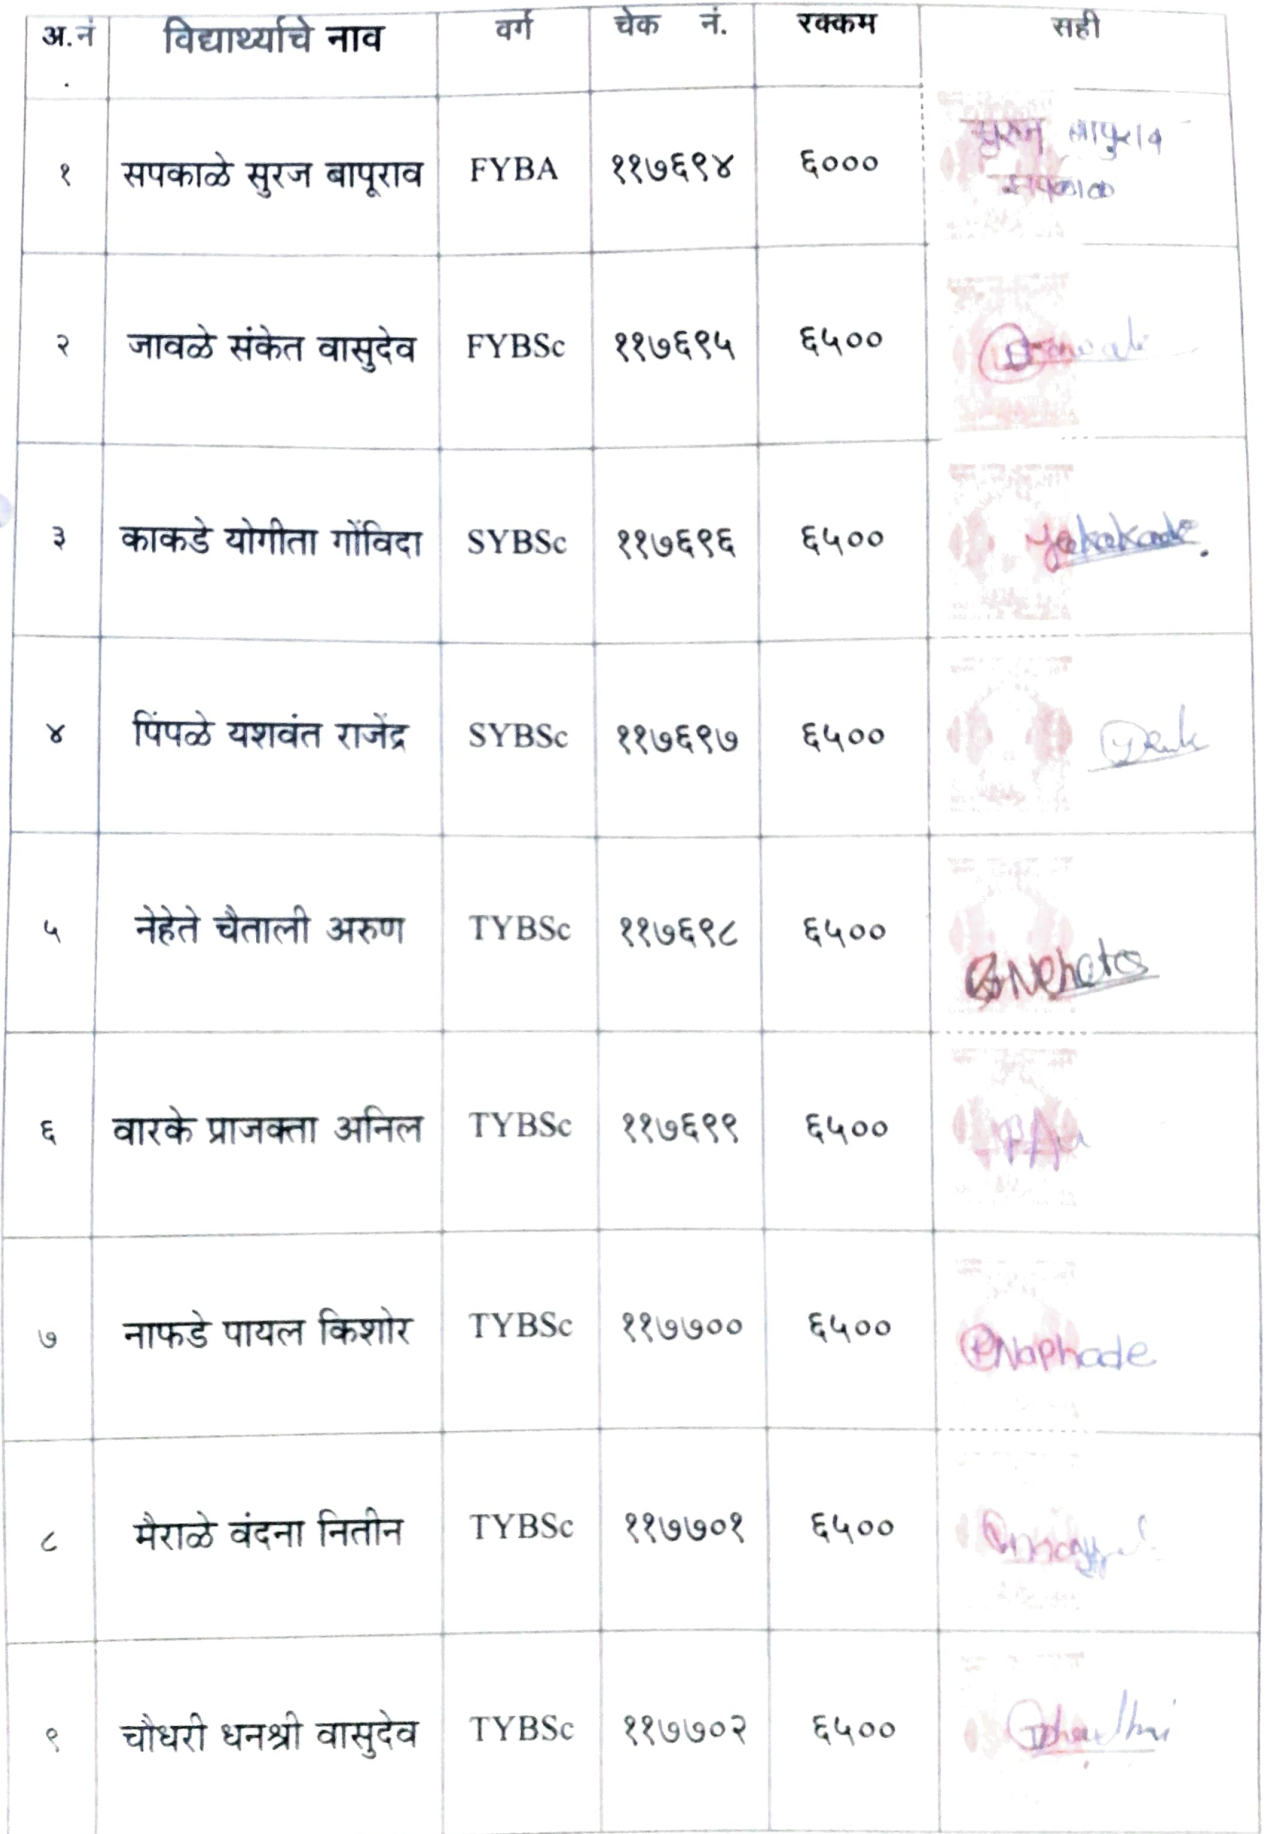 अ.नं. विद्यार्थ्याचे नाव वर्ग चेक नं. रक्कम सही
१ सपकाळे सुरज बापूराव FYBA ११७६९४ ६००० सुरज बापुराव
सपकाळे
२ जावळे संकेत वासुदेव FYBSc ११७६९५ ६५००
३ काकडे योगीता गोंविदा SYBSc ११७६९६ ६५००
४ पिंपळे यशवंत राजेंद्र SYBSc ११७६९७ ६५००
५ नेहेते चैताली अरुण TYBSc ११७६९८ ६५००
६ वारके प्राजक्ता अनिल TYBSc ११७६९९ ६५००
७ नाफडे पायल किशोर TYBSc ११७७०० ६५०० PNaphade
८ मैराळे वंदना नितीन TYBSc ११७७०१ ६५००
९ चौधरी धनश्री वासुदेव TYBSc ११७७०२ ६५००